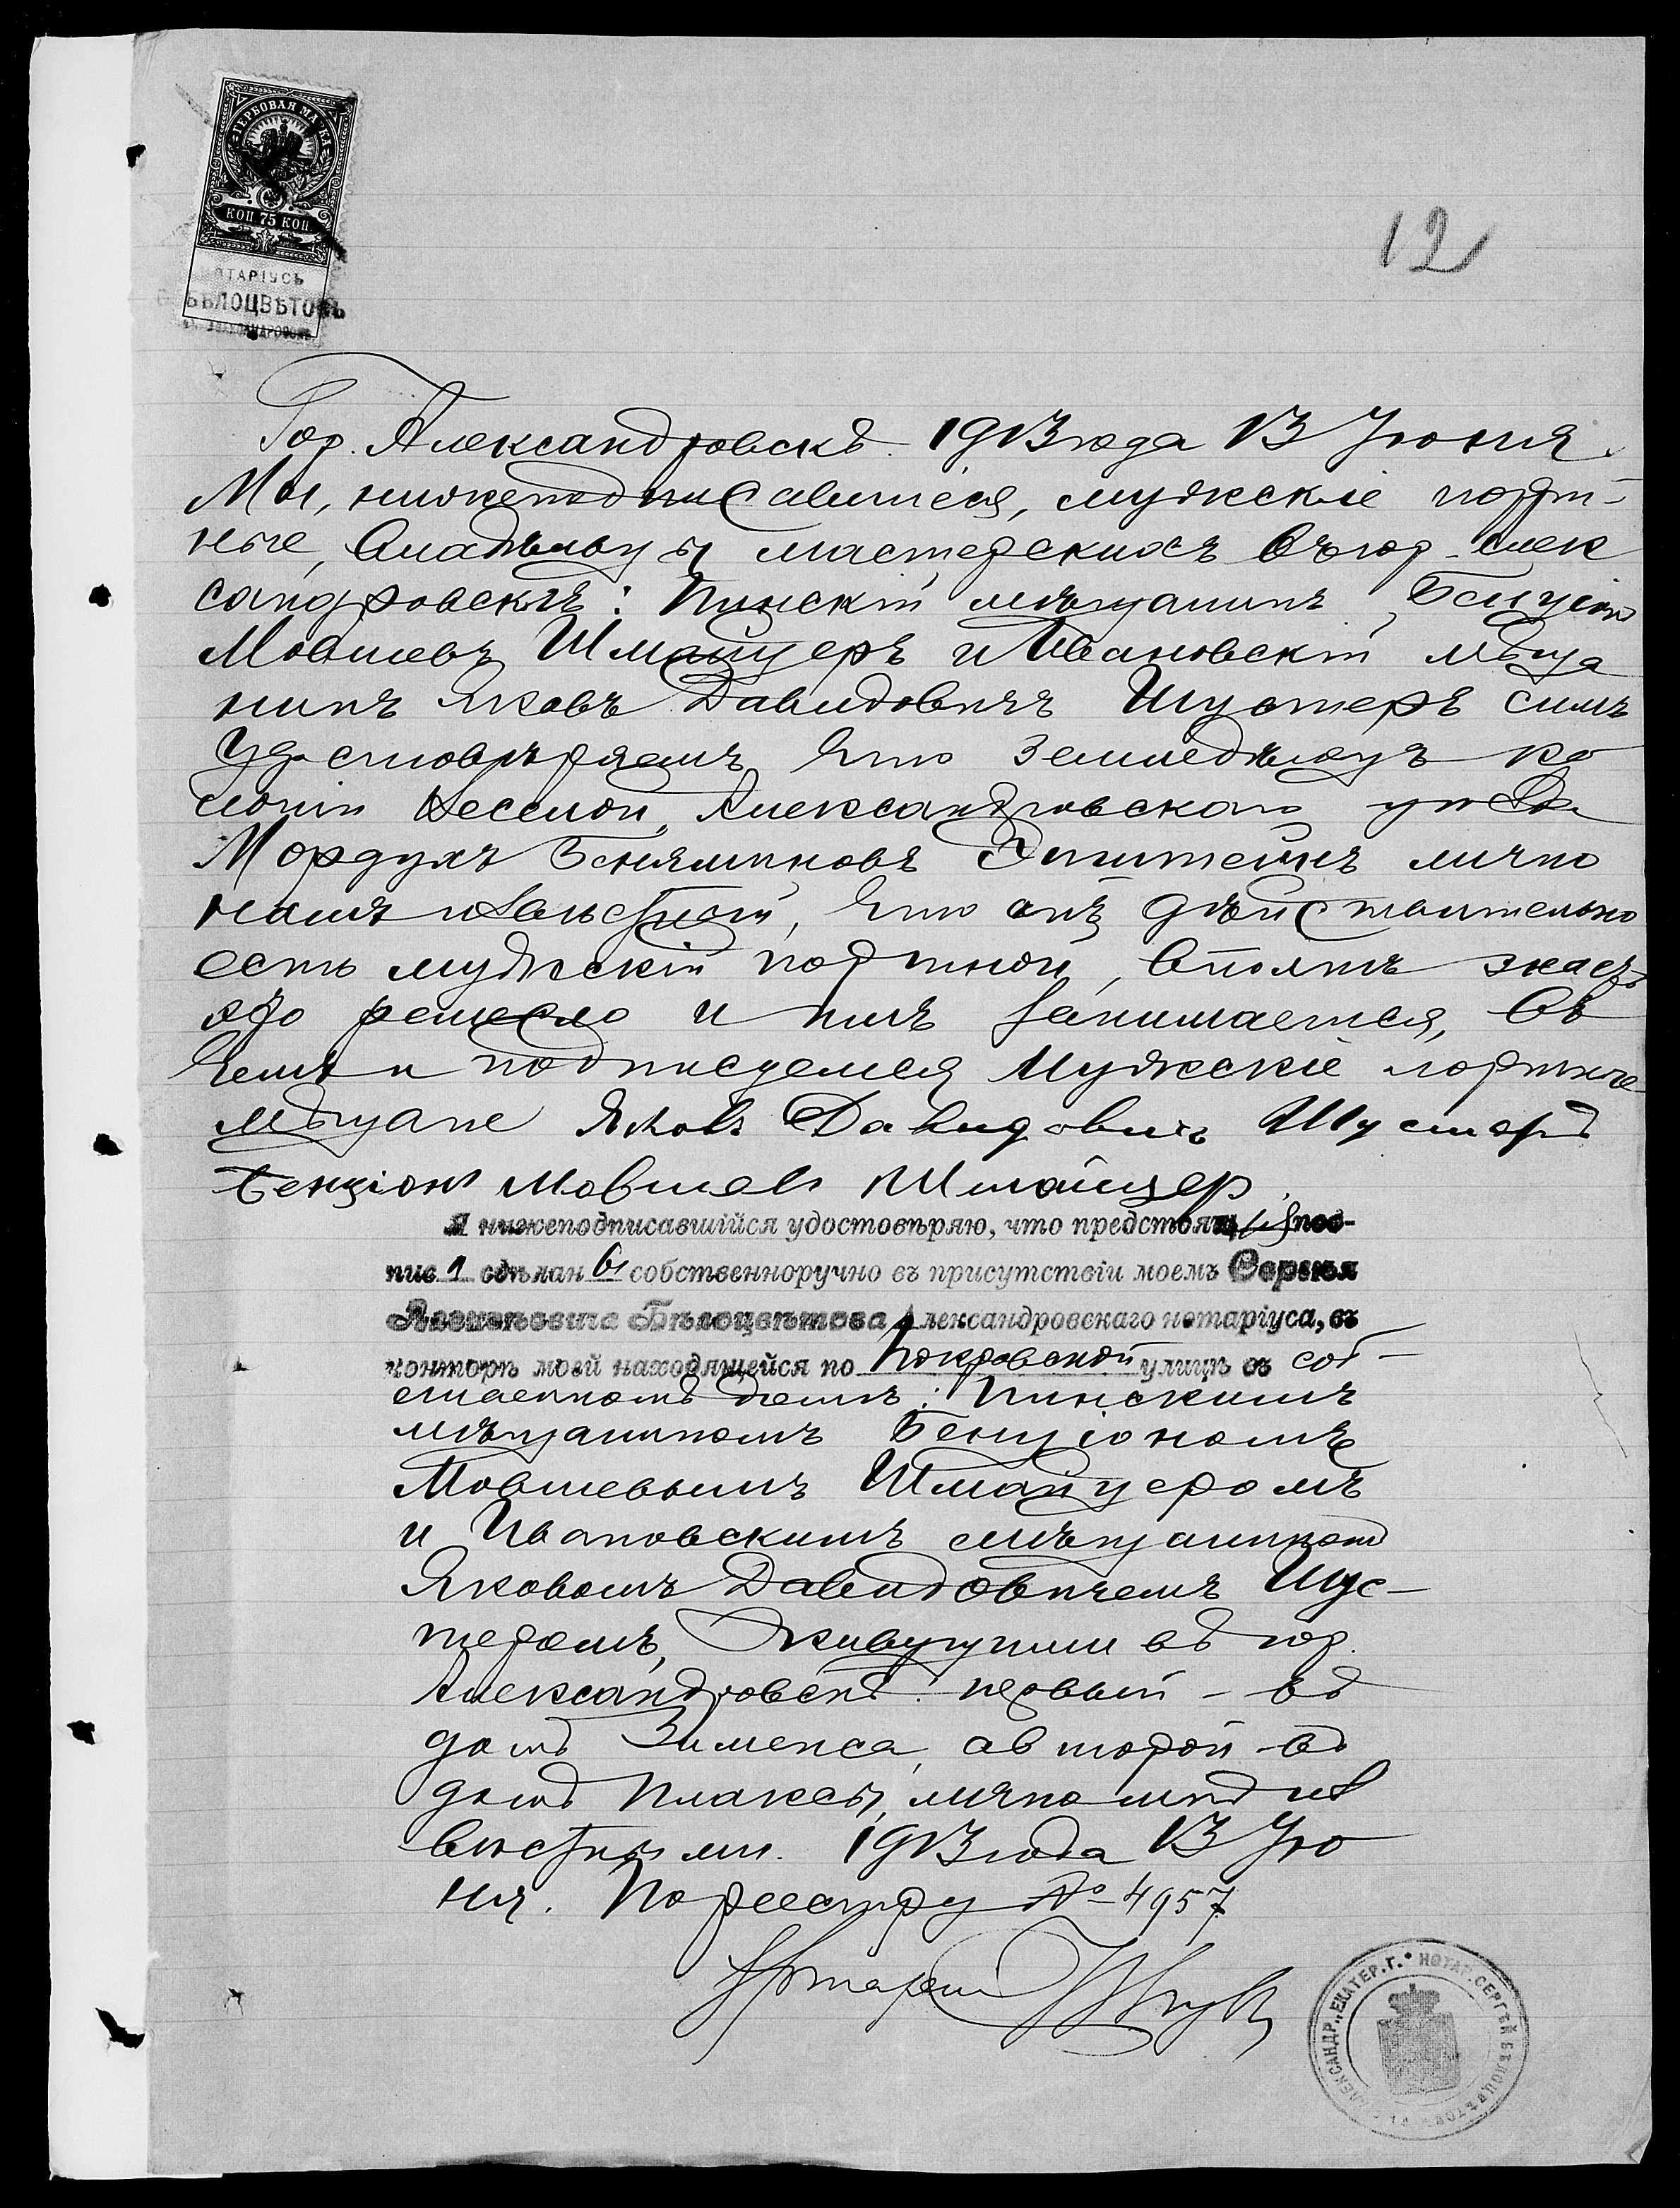 ГЕРБОВАЯ МАРКА
КОП 75 КОП
НОТАРІУСЪ
БѢЛОЦВѢТОВЪ
12
Гор. Александровскъ. 1913 года 13 Іюня.
Мы, нижеподписавшіеся, мужскіе порт-
ные, владѣльцы мастерскихъ въ гор. Алек
сандровскѣ: Пинскій мѣщанинъ Бенціонъ
Мовшевъ Шмайцеръ и Ивановскій мѣща
нинъ Яковъ Давидовичъ Шустеръ симъ
удостовѣряемъ что земледѣлецъ ко
лоніи Веселой, Александровскаго уѣзда
Мордухъ Беняминовъ Эпштейнъ лично
намъ извѣстный, что онъ дѣйствительно
есть мужской портной, вполнѣ знаетъ
это ремесло и имъ занимается, въ
чемъ и подписуемся Мужскіе портные
мѣщане Яковъ Давидовичъ Шустеръ
Бенціонъ Мовшевъ Шмайцер.
Я нижеподписавшійся удостовѣряю, что предстоящія под-
писи сдѣланы собственноручно въ присутствіи моемъ Сергѣя
Бѣлоцвѣтова Александровскаго нотаріуса, въ
конторѣ моей находящейся по Покровской улицѣ въ соб-
ственномъ домѣ: Пинскимъ
мѣщаниномъ Бенціономъ
Мовшевымъ Шмайцеромъ
и Ивановскимъ мѣщаниномъ
Яковомъ Давидовичемъ Шус-
теромъ, живущими въ гор.
Александровскѣ: первый - въ
домѣ Зименса, а второй - въ
домѣ Плаксы, лично мнѣ из
вѣстными. 1913 года 13 Ію
ня. По реестру № 4957.
Нотаріусъ
АЛЕКСАНДР. ЕКАТЕР. Г. * НОТАР. СЕРГѢЙ БѢЛОЦВѢТОВЪ